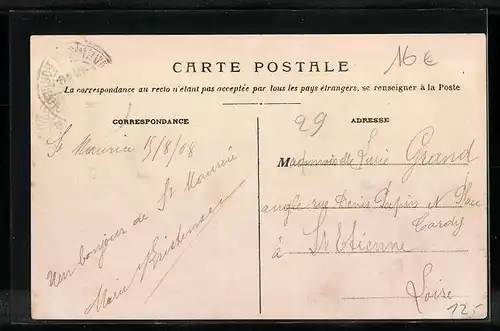 16€
CARTE POSTALE
La correspondance au recto n'étant pas acceptée par tous les pays étrangers, se renseigner à la Poste
CORRESPONDANCE
ADRESSE
29
St Maurice 15/8/08
Mademoiselle Grand
angle rue Denis Papin
à St Etienne
Loire
Un bonjour de St Maurice
Marie
12,-